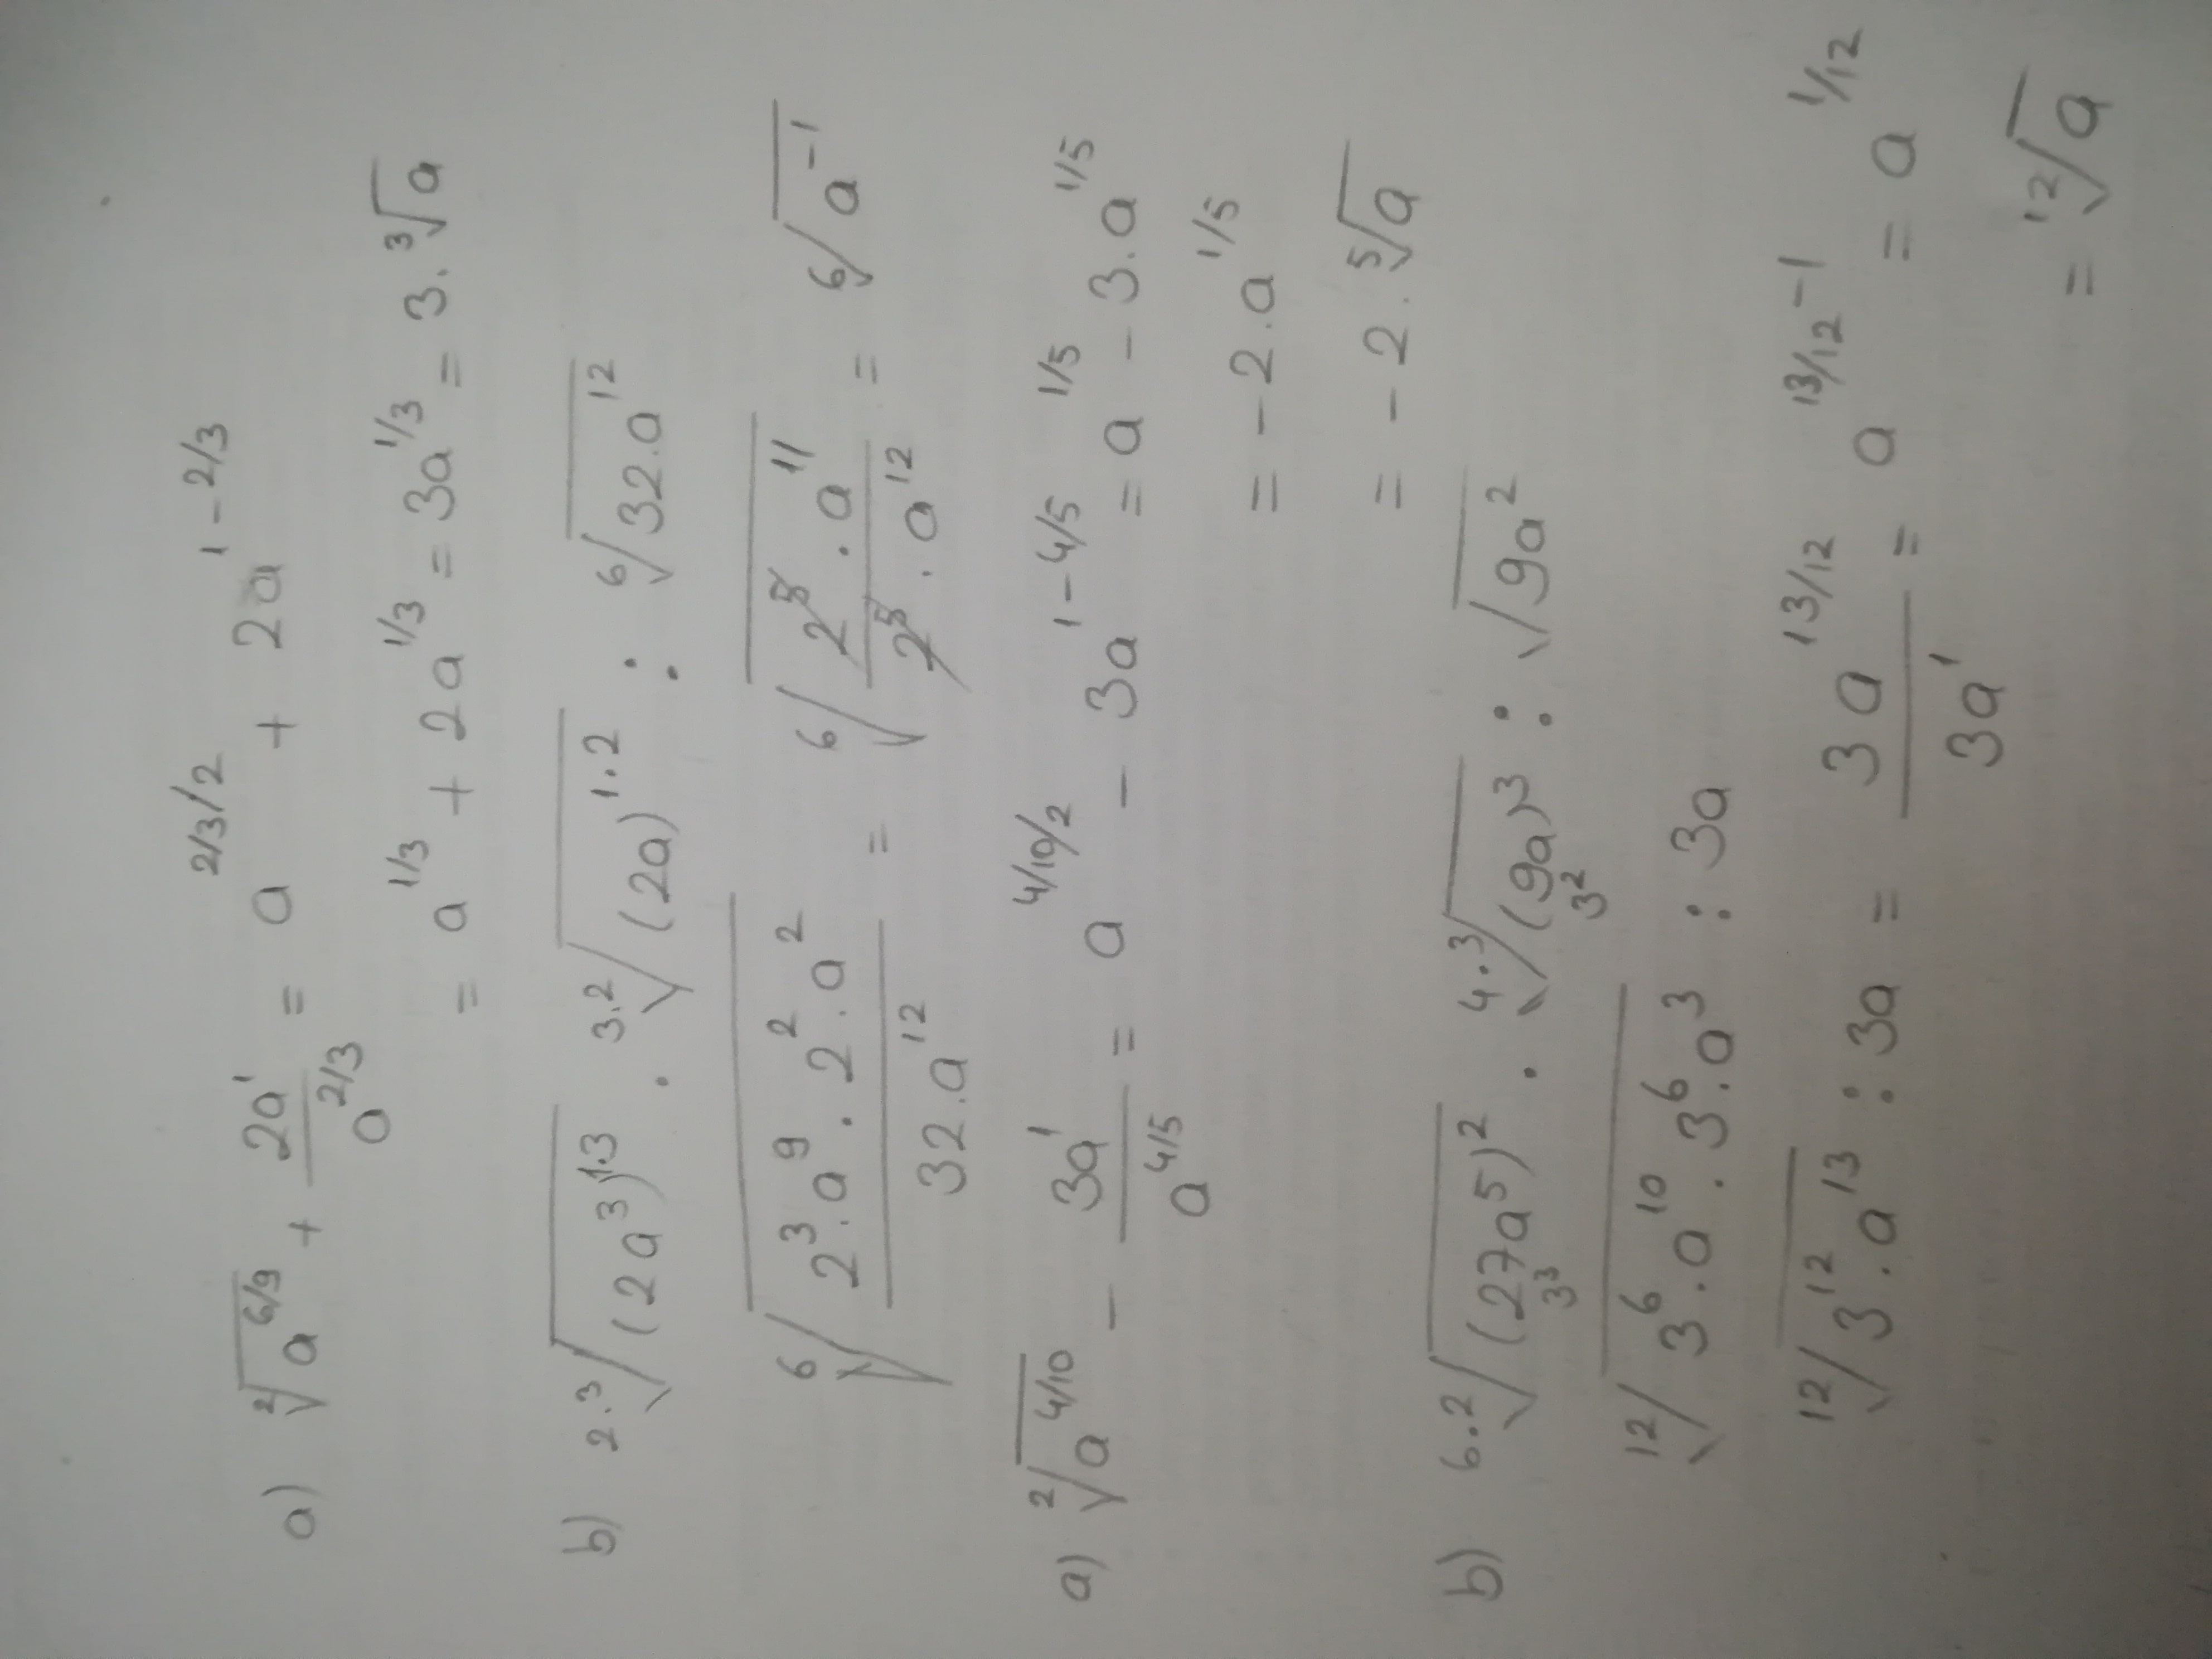 a) ²√(a^(6/9)) + 2a¹/a^(2/3) = a^(2/3/2) + 2a^(1-2/3)
= a^(1/3) + 2a^(1/3) = 3a^(1/3) = 3·³√a
b) ^(2·3)√((2a³)^(1·3)) · ^(3·2)√((2a)^(1·2)) : ⁶√(32·a¹²)
⁶√((2³·a⁹·2²·a²)/(32·a¹²)) = ⁶√((2⁵·a¹¹)/(2⁵·a¹²)) = ⁶√(a⁻¹)
a) ²√(a^(4/10)) - 3a¹/a^(4/5) = a^(4/10/2) - 3a^(1-4/5) = a^(1/5) - 3·a^(1/5)
= -2·a^(1/5)
= -2·⁵√a
b) ^(6·2)√((27a⁵)²) · ^(4·3)√((9a)³) : √(9a²)
3³ 3²
¹²√(3⁶·a¹⁰·3⁶·a³) : 3a
¹²√(3¹²·a¹³) : 3a = 3a^(13/12)/3a¹ = a^(13/12-1) = a^(1/12)
= ¹²√a